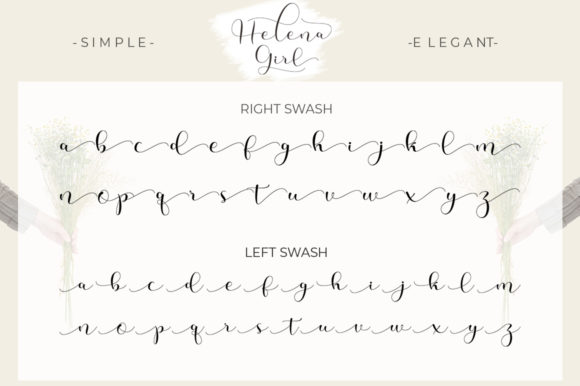 - S I M P L E -
Helena
Girl
-E LEGANT-
RIGHT SWASH
a b c d e f g h i j k l m
n o p q r s t u v w x y z
LEFT SWASH
a b c d e f g h i j k l m
n o p q r s t u v w x y z